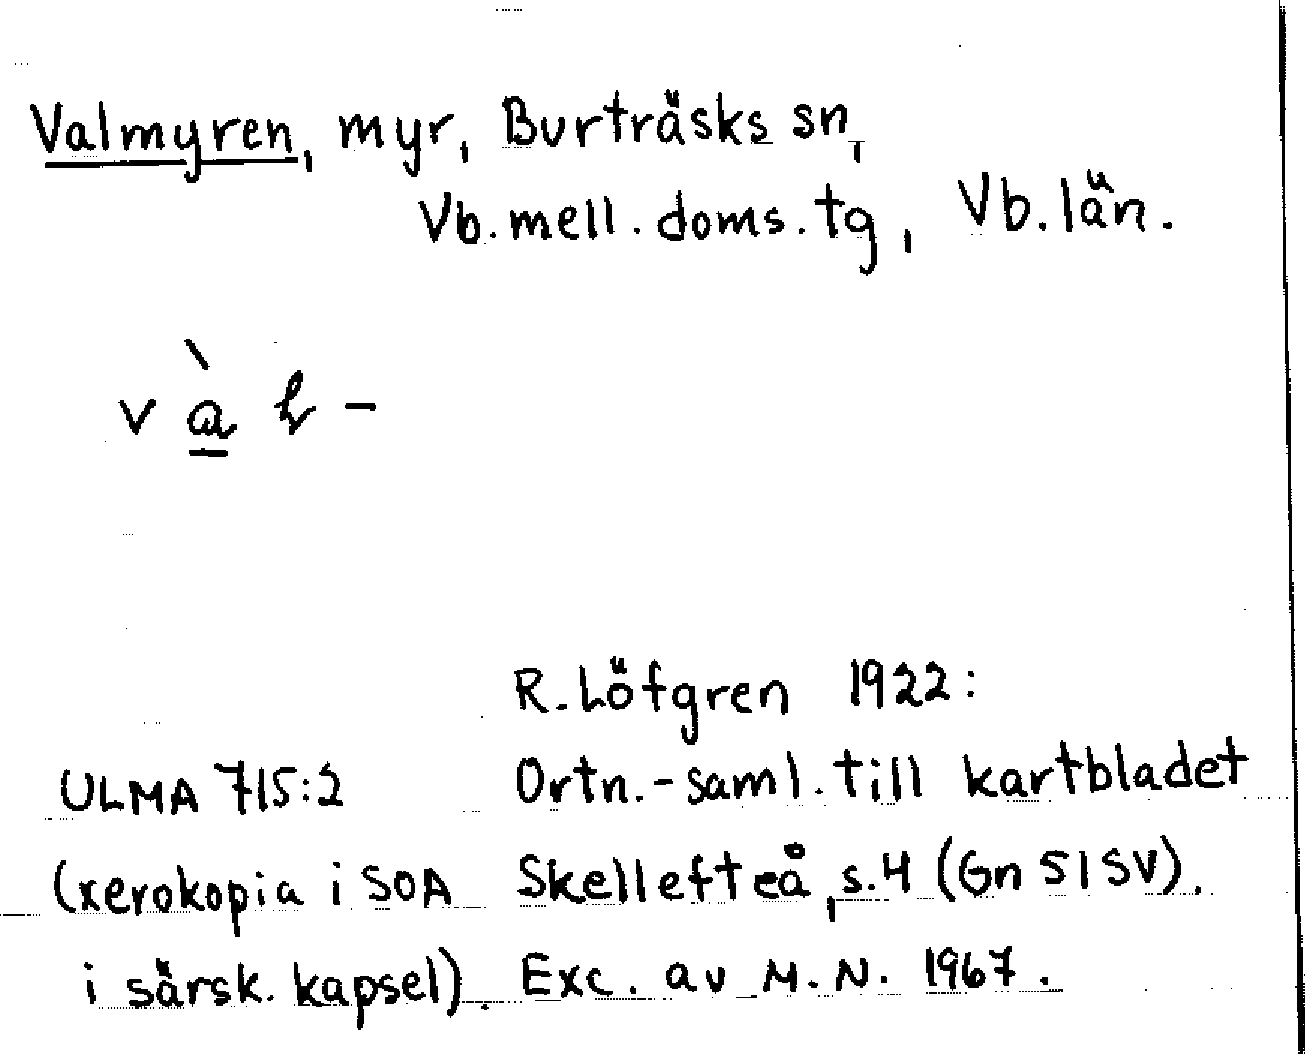 Valmyren, myr, Burträsks sn,
Vb. mell. doms. tg, Vb. län.
v à̲ ɫ -
R. Löfgren 1922:
ULMA 715:2 Ortn.-saml. till kartbladet
(xerokopia i SOA Skellefteå, s. 4 (Gn 51 SV).
i särsk. kapsel). Exc. av M. N. 1967.